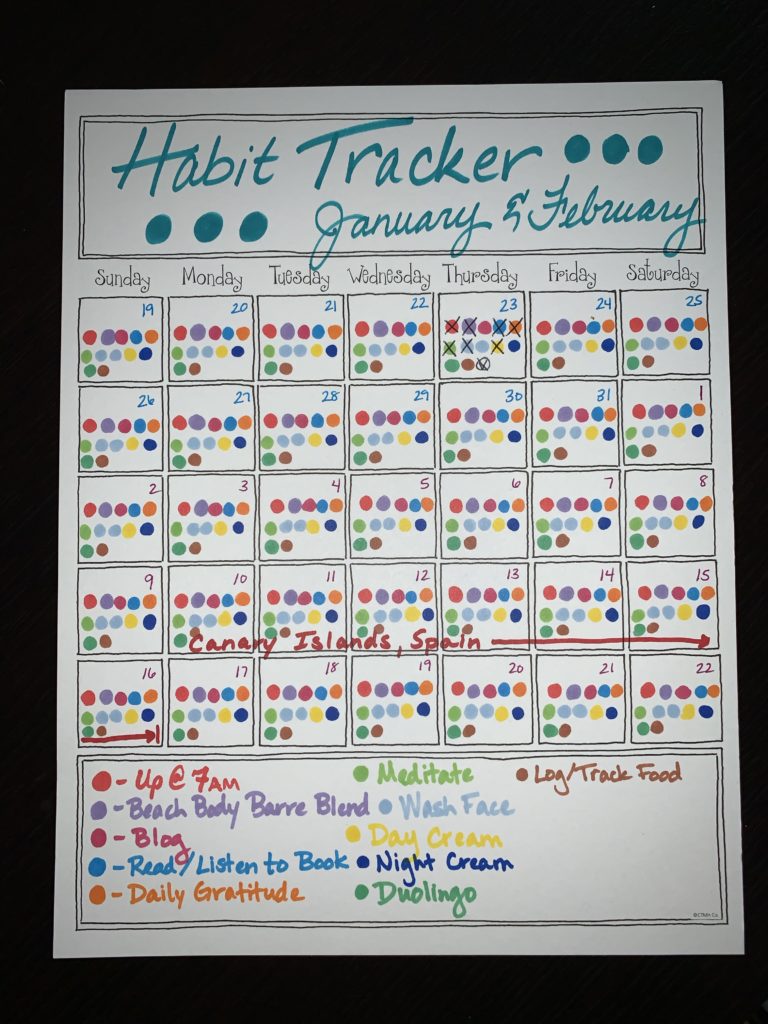 Habit Tracker
January & February
Sunday Monday Tuesday Wednesday Thursday Friday Saturday
19 20 21 22 23 24 25
26 27 28 29 30 31 1
2 3 4 5 6 7 8
9 10 11 12 13 14 15
Canary Islands, Spain
16 17 18 19 20 21 22
- Up @ 7AM
- Beach Body Barre Blend
- Blog
- Read/Listen to Book
- Daily Gratitude
Meditate
Wash Face
Day Cream
Night Cream
Duolingo
Log/Track Food